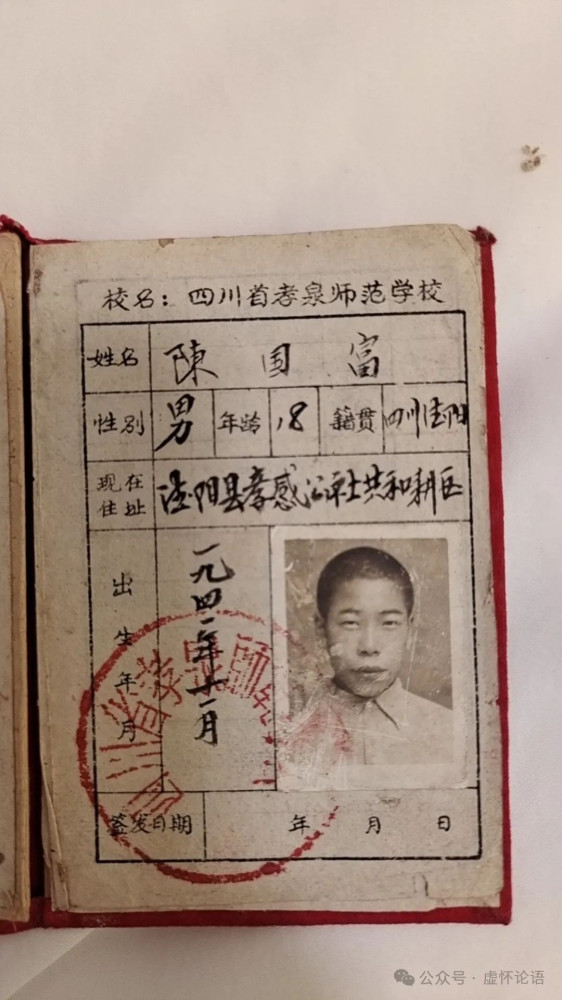 校名：四川省孝泉师范学校
姓名 陳国富
性别 男 年龄 18 籍贯 四川德阳
现在住址 德阳县孝感公社共和耕区
出生年月 一九四一年十一月
签发日期 年 月 日
四川省孝泉师
公众号·虚怀论语